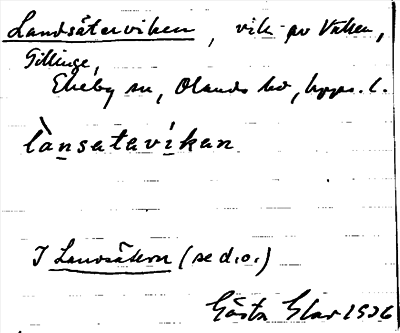 Landsäterviken, vik av Valen,
Gillinge,
Ekeby sn, Olands hd, Upps. l.
lànsatavikan
I Landsätern (se d.o.)
Gösta Elar 1936